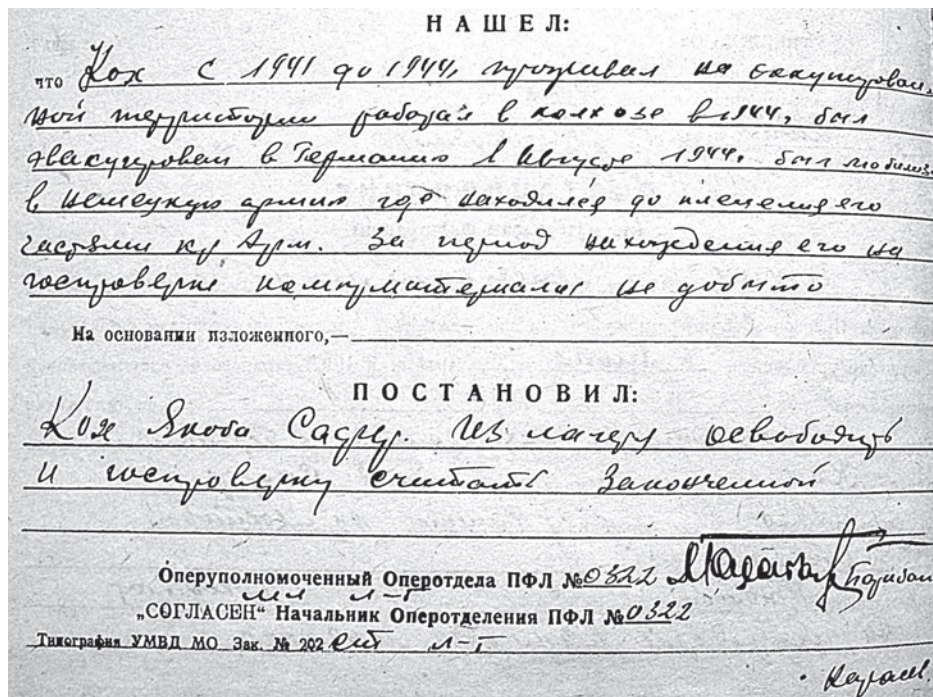 НАШЕЛ:
что Кох с 1941 до 1944. проживал на оккупирован-
ной территории работая в колхозе в 1944. был
эвакуирован в Германию в Августе 1944. был мобилиз
в немецкую армию где находился до пленения его
частями кр Арм. За период нахождения его на
госпроверке компрматериалы не добыто
На основании изложенного,—
ПОСТАНОВИЛ:
Кох Якоба из лагеря освободить
и госпроверку считать законченной
Оперуполномоченный Оперотдела ПФЛ № 0322
мл л-т
„СОГЛАСЕН“ Начальник Оперотделения ПФЛ № 0322
Типография УМВД МО Зак. № 202 ст л-т